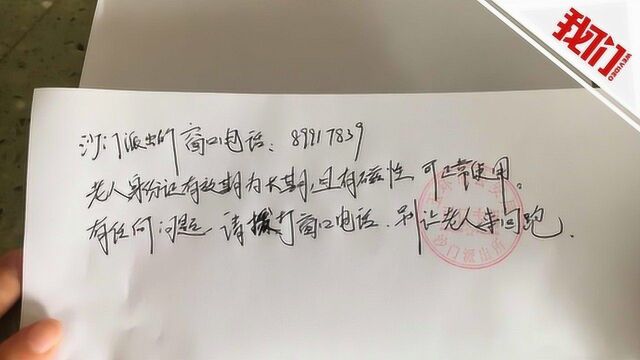 我们
WEVIDEO
沙门派出所窗口电话：89917839
老人身份证有效期为长期，且有磁性，可正常使用。
有任何问题，请拨打窗口电话，别让老人来回跑。
沙门派出所